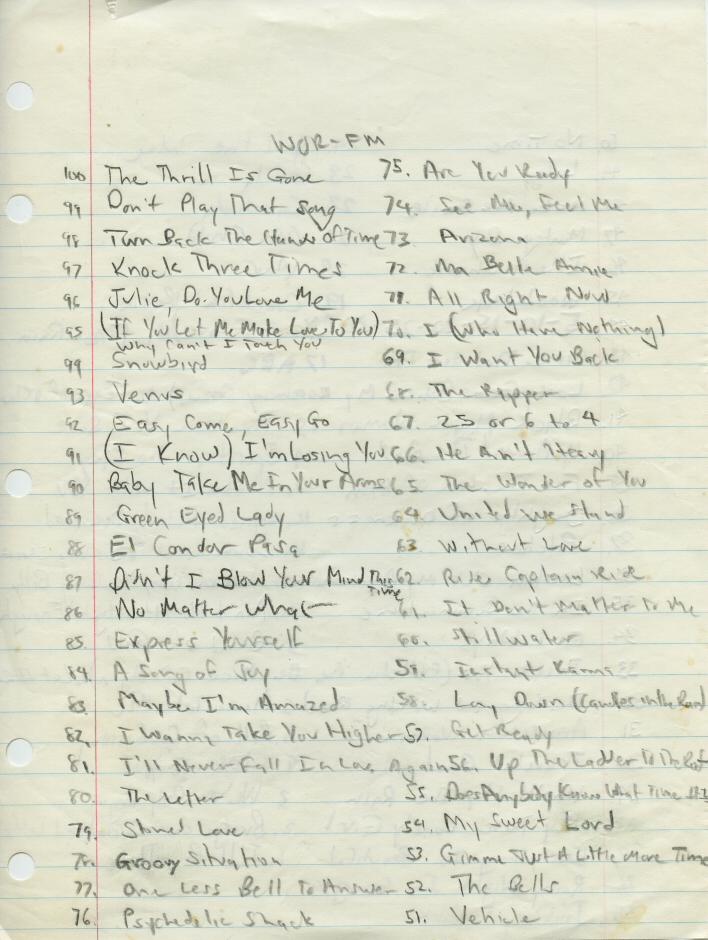 WOR-FM
100 The Thrill Is Gone
99 Don't Play That Song
98 Turn Back The Hands Of Time
97 Knock Three Times
96 Julie, Do You Love Me
95 (If You Let Me Make Love To You)
Why Can't I Touch You
99 Snowbird
93 Venus
92 Easy Come, Easy Go
91 (I Know) I'm Losing You
90 Baby Take Me In Your Arms
89 Green Eyed Lady
88 El Condor Pasa
87 Didn't I Blow Your Mind This Time
86 No Matter What
85. Express Yourself
84. A Song of Joy
83. Maybe I'm Amazed
82. I Wanna Take You Higher
81. I'll Never Fall In Love Again
80. The Letter
79. Stoned Love
78. Groovy Situation
77. One Less Bell To Answer
76. Psychedelic Shack
75. Are You Ready
74. See Me, Feel Me
73 Arizona
72. Ma Belle Amie
71. All Right Now
70. I (Who Have Nothing)
69. I Want You Back
68. The Rapper
67. 25 or 6 to 4
66. He Ain't Heavy
65. The Wonder of You
64. United We Stand
63 Without Love
62 Ride Captain Ride
61. It Don't Matter To Me
60. Still Water
59. Instant Karma
58. Lay Down (Candles in the Rain)
57. Get Ready
56. Up The Ladder To The Roof
55. Does Anybody Know What Time It Is
54. My Sweet Lord
53. Gimme Just A Little More Time
52. The Bells
51. Vehicle